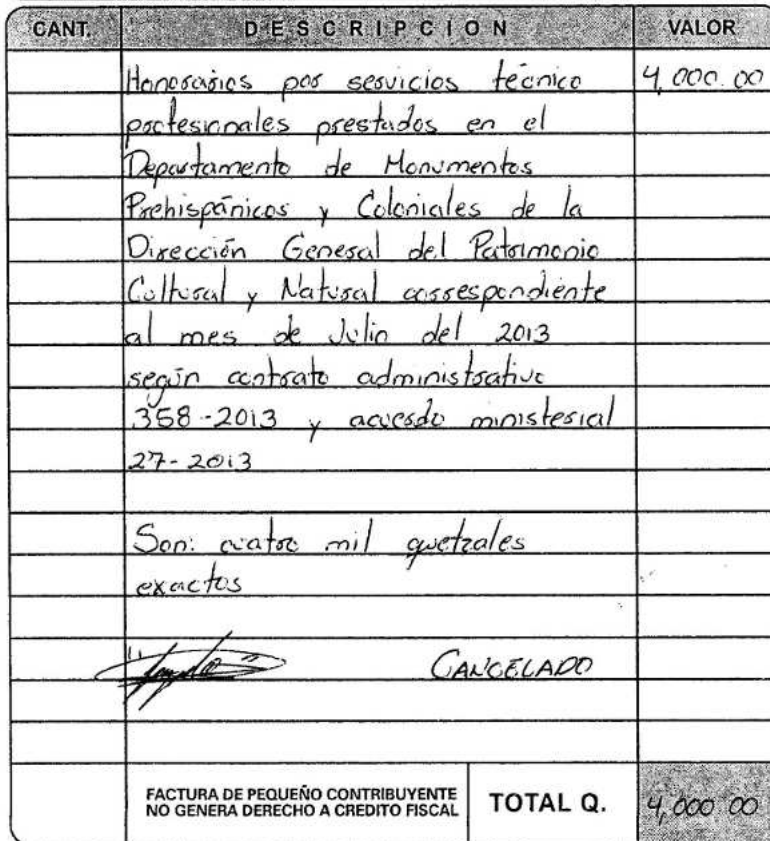 CANT. DESCRIPCION VALOR
Honorarios por servicios técnico 4,000.00
profesionales prestados en el
Departamento de Monumentos
Prehispánicos y Coloniales de la
Dirección General del Patrimonio
Cultural y Natural correspondiente
al mes de Julio del 2013
según contrato administrativo
358-2013 y acuerdo ministerial
27-2013
Son: cuatro mil quetzales
exactos
CANCELADO
FACTURA DE PEQUEÑO CONTRIBUYENTE
NO GENERA DERECHO A CREDITO FISCAL
TOTAL Q. 4,000 00